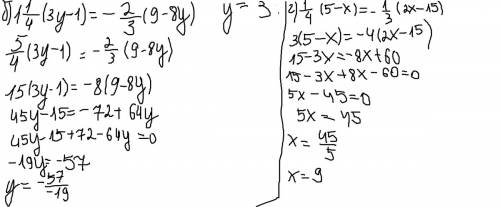 б) 1 1/4 (3y-1) = - 2/3 (9-8y)
5/4 (3y-1) = - 2/3 (9-8y)
15(3y-1) = -8(9-8y)
45y-15 = -72+64y
45y-15+72-64y=0
-19y=-57
y = -57/-19
y = 3.
г) 1/4 (5-x) = - 1/3 (2x-15)
3(5-x) = -4(2x-15)
15-3x=-8x+60
15-3x+8x-60=0
5x-45=0
5x=45
x = 45/5
x=9